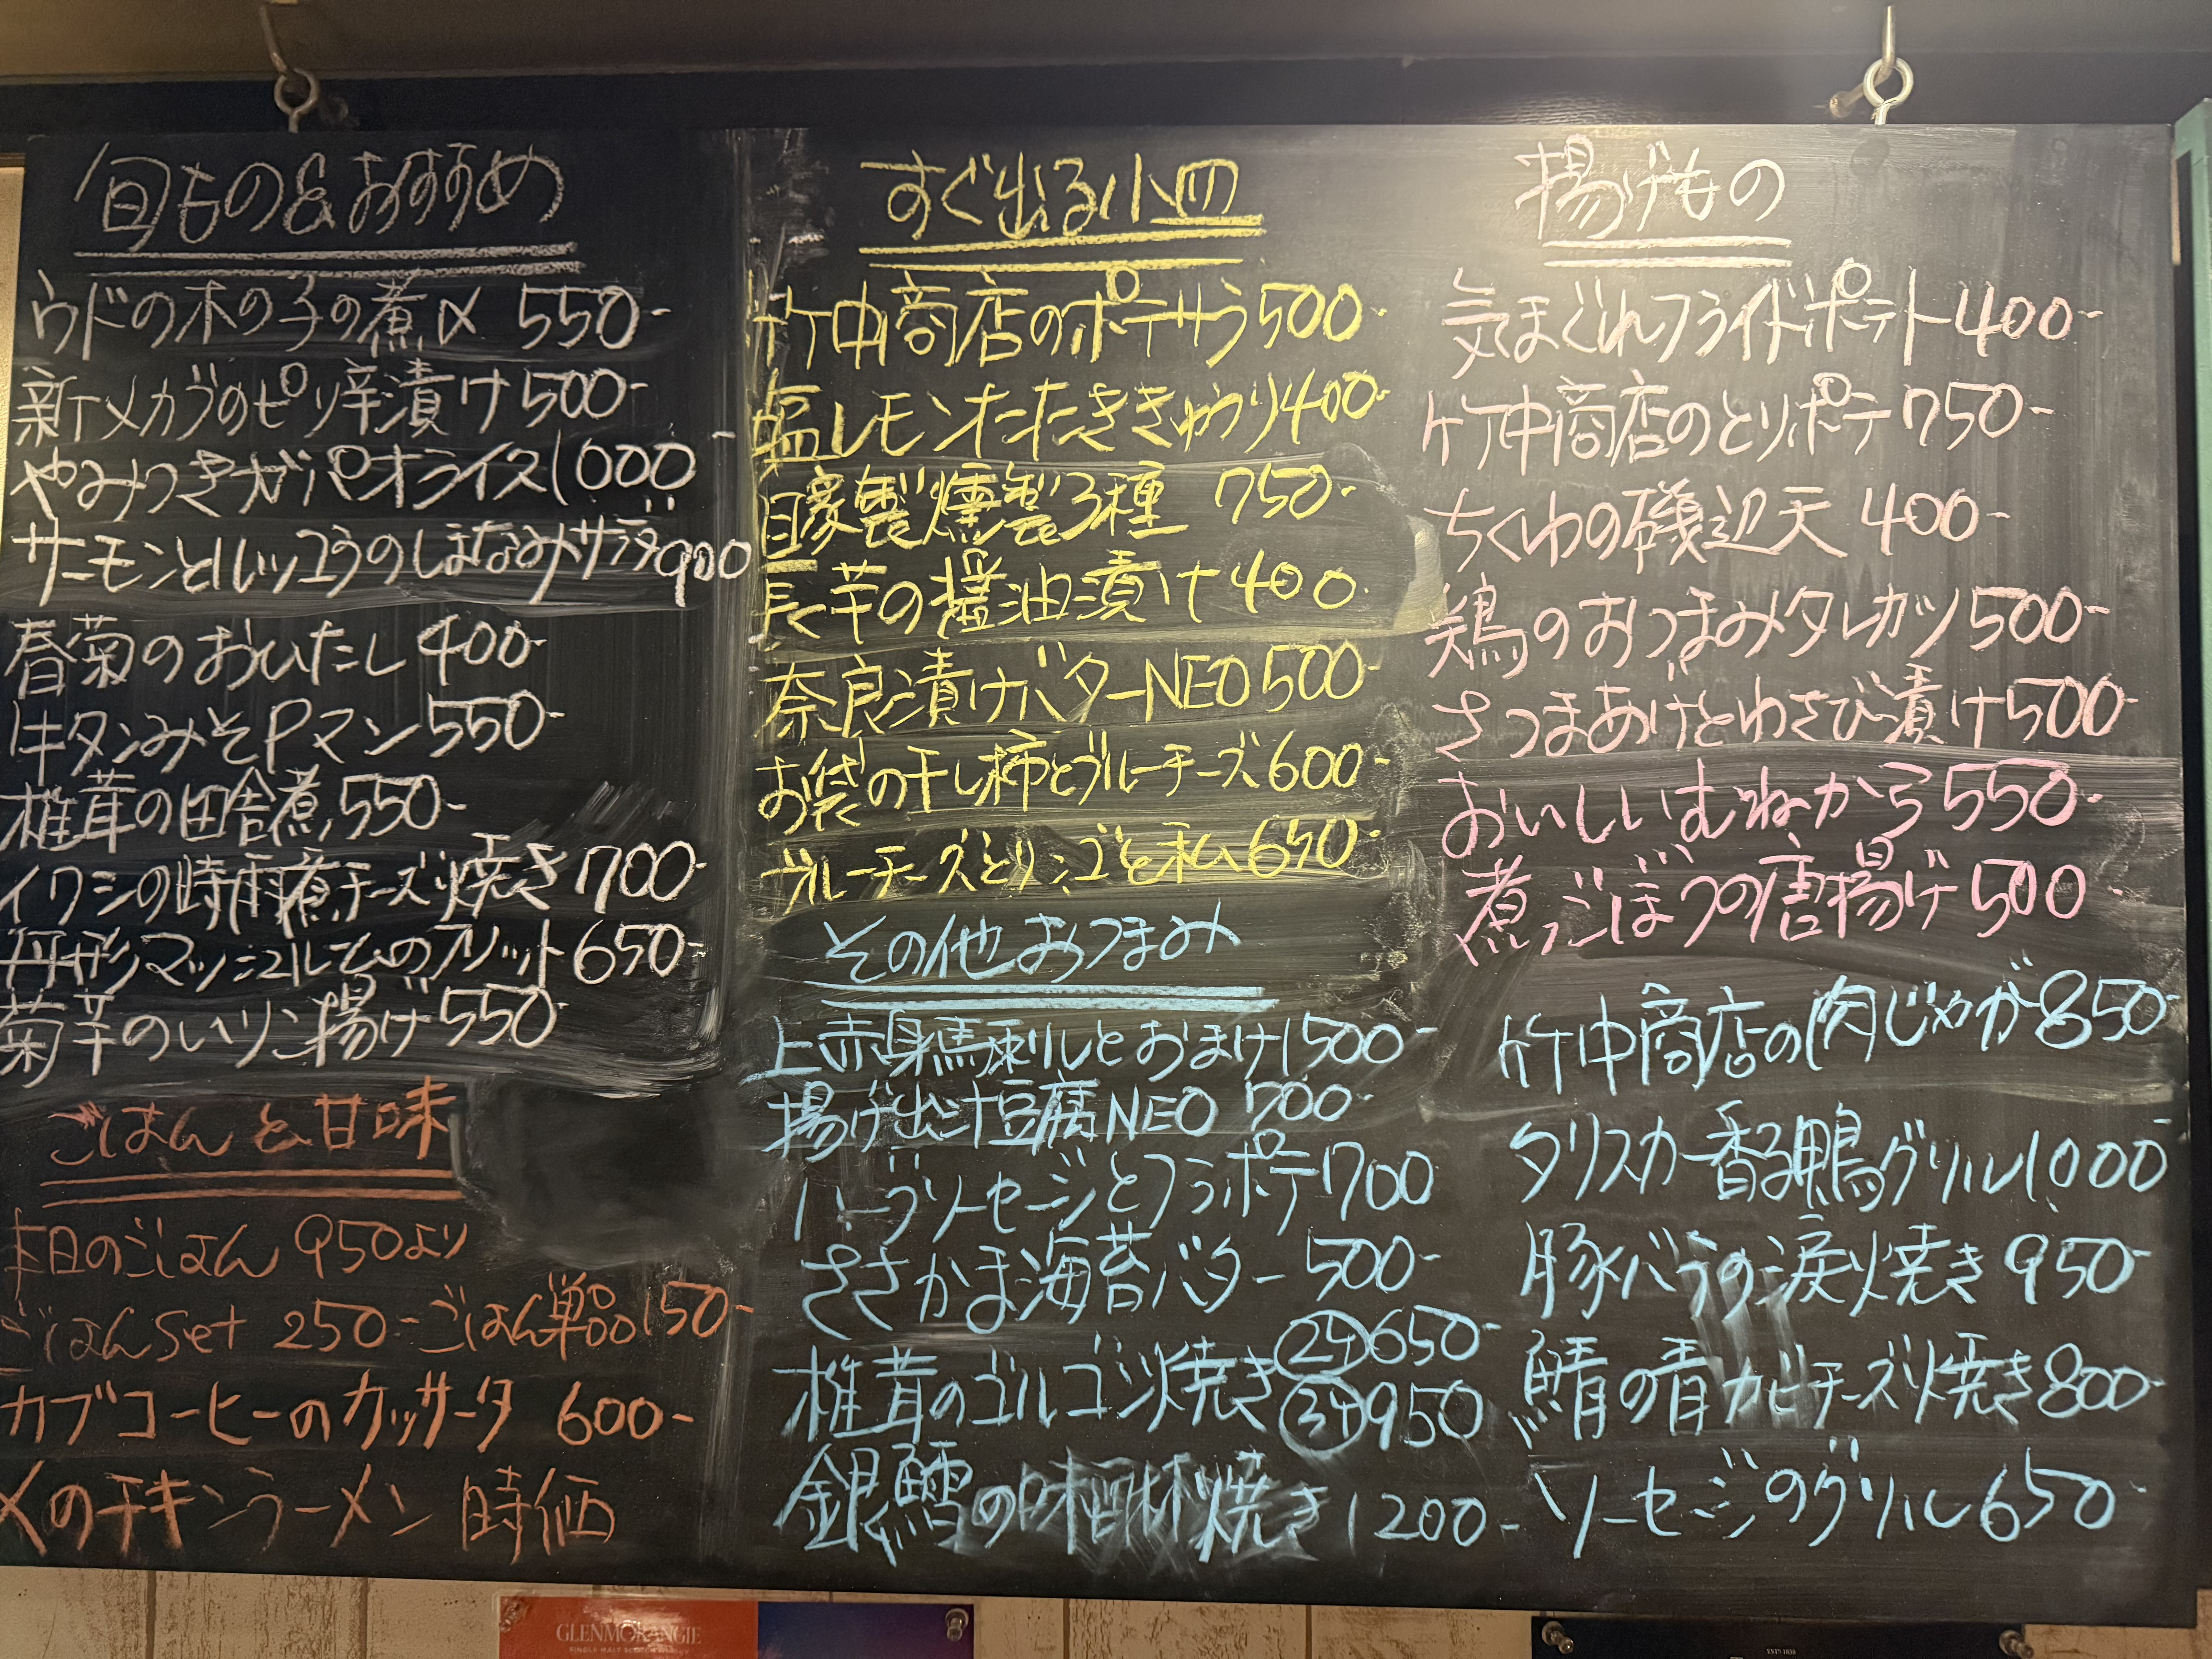 旬もの&おすすめ
ウドの木の子の煮〆 550-
新メカブのピリ辛漬け 500-
やみつきガパオライス 1000-
サーモンとルッコラのしまなみサラダ 900
春菊のおひたし 400-
牛タンみそPマン 550-
椎茸の田舎煮 550-
イワシの時雨煮チーズ焼き 700-
丹形マッシュルームのフリット 650-
菊芋のいリこ揚げ 550-
ごはんと甘味
本日のごはん 950より
ごはんSet 250- ごはん単品 150-
カブコーヒーのカッサータ 600-
〆のチキンラーメン 時価
すぐ出る小皿
竹中商店のポテサラ 500-
塩レモンたたききゅうり 400-
自家製燻製3種 750-
長芋の醤油漬け 400-
奈良漬けバターNEO 500-
お袋の干し柿とブルーチーズ 600-
ブルーチーズとりンゴと私 650-
その他おつまみ
上赤身馬刺しとおまけ 1500-
揚げ出汁豆腐NEO 700-
ハーブソーセージとフラポテ 700
ささかま海苔バター 500-
椎茸のゴルゴン焼き 2ケ 650-
3ケ 950
銀鱈の味噌焼き 1200-
揚げもの
気まぐれフライドポテト 400-
竹中商店のとりポテ 750-
ちくわの磯辺天 400-
鶏のおつまみタレカツ 500-
さつまあげとわさび漬け 500-
おいしいむねから 550-
煮ごぼうの唐揚げ 500-
竹中商店の肉じゃが 850-
タリスカー香る鴨グリル 1000-
豚バラの涙焼き 950-
鯖の青カビチーズ焼き 800-
ソーセージのグリル 650-
GLENMORANGIE
SINGLE MALT SCOTCH WHISKY